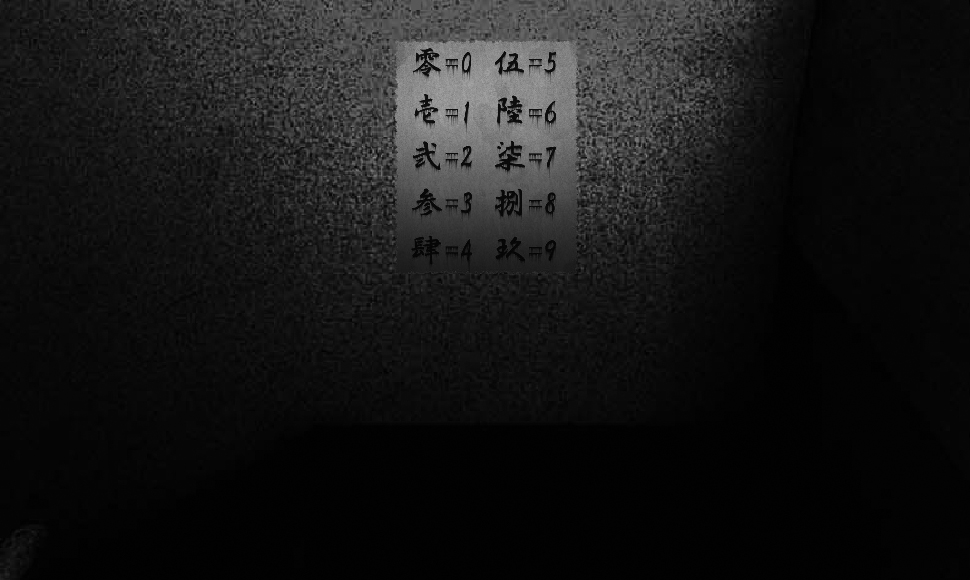 零=0 伍=5
壱=1 陸=6
弐=2 柒=7
参=3 捌=8
肆=4 玖=9